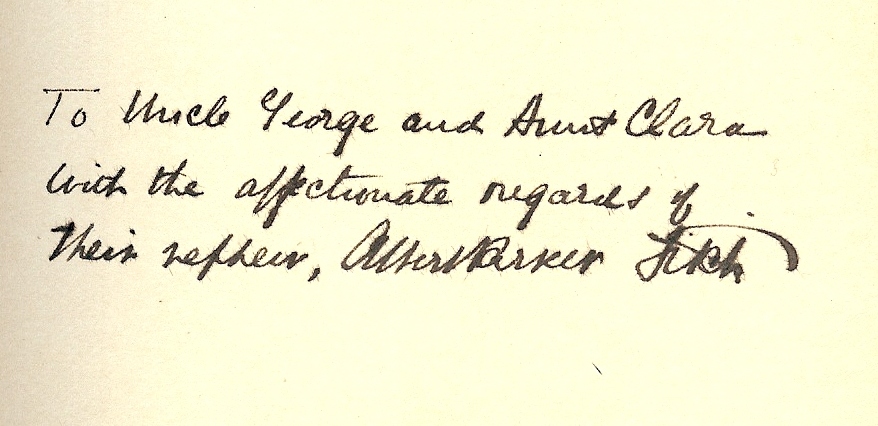 To Uncle George and Aunt Clara
with the affectionate regards of
their nephew, Albert Parker Fitch